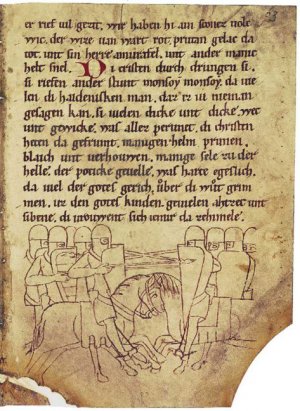 er rief uil gezat. wir haben hi ain sconez uolc
wic. der wize san wart rot. prutan gelac da
tot. unt sin herre amurafel. unt ander manic
helt snel. Di cristen durch drungen si.
si riefen ander stunt monsoy monsoy. da uie
len di haidenisken man. daz iz iu nieman
gesagen kan. si slugen dicke unt dicke. wec
unt gewicke. was allez perunt. di christen
heten da gefrumt. manigen helm prinnen.
blaich unt uerhouwen. manige sele zu der
helle. der poticke geuelle. was harte egeslich.
da uiel der gotes gerich. uber di wtgrim
men. uz den gotes kinden. geuielen ahzec unt
sibene. di urouwent sich iemir da zehimele.